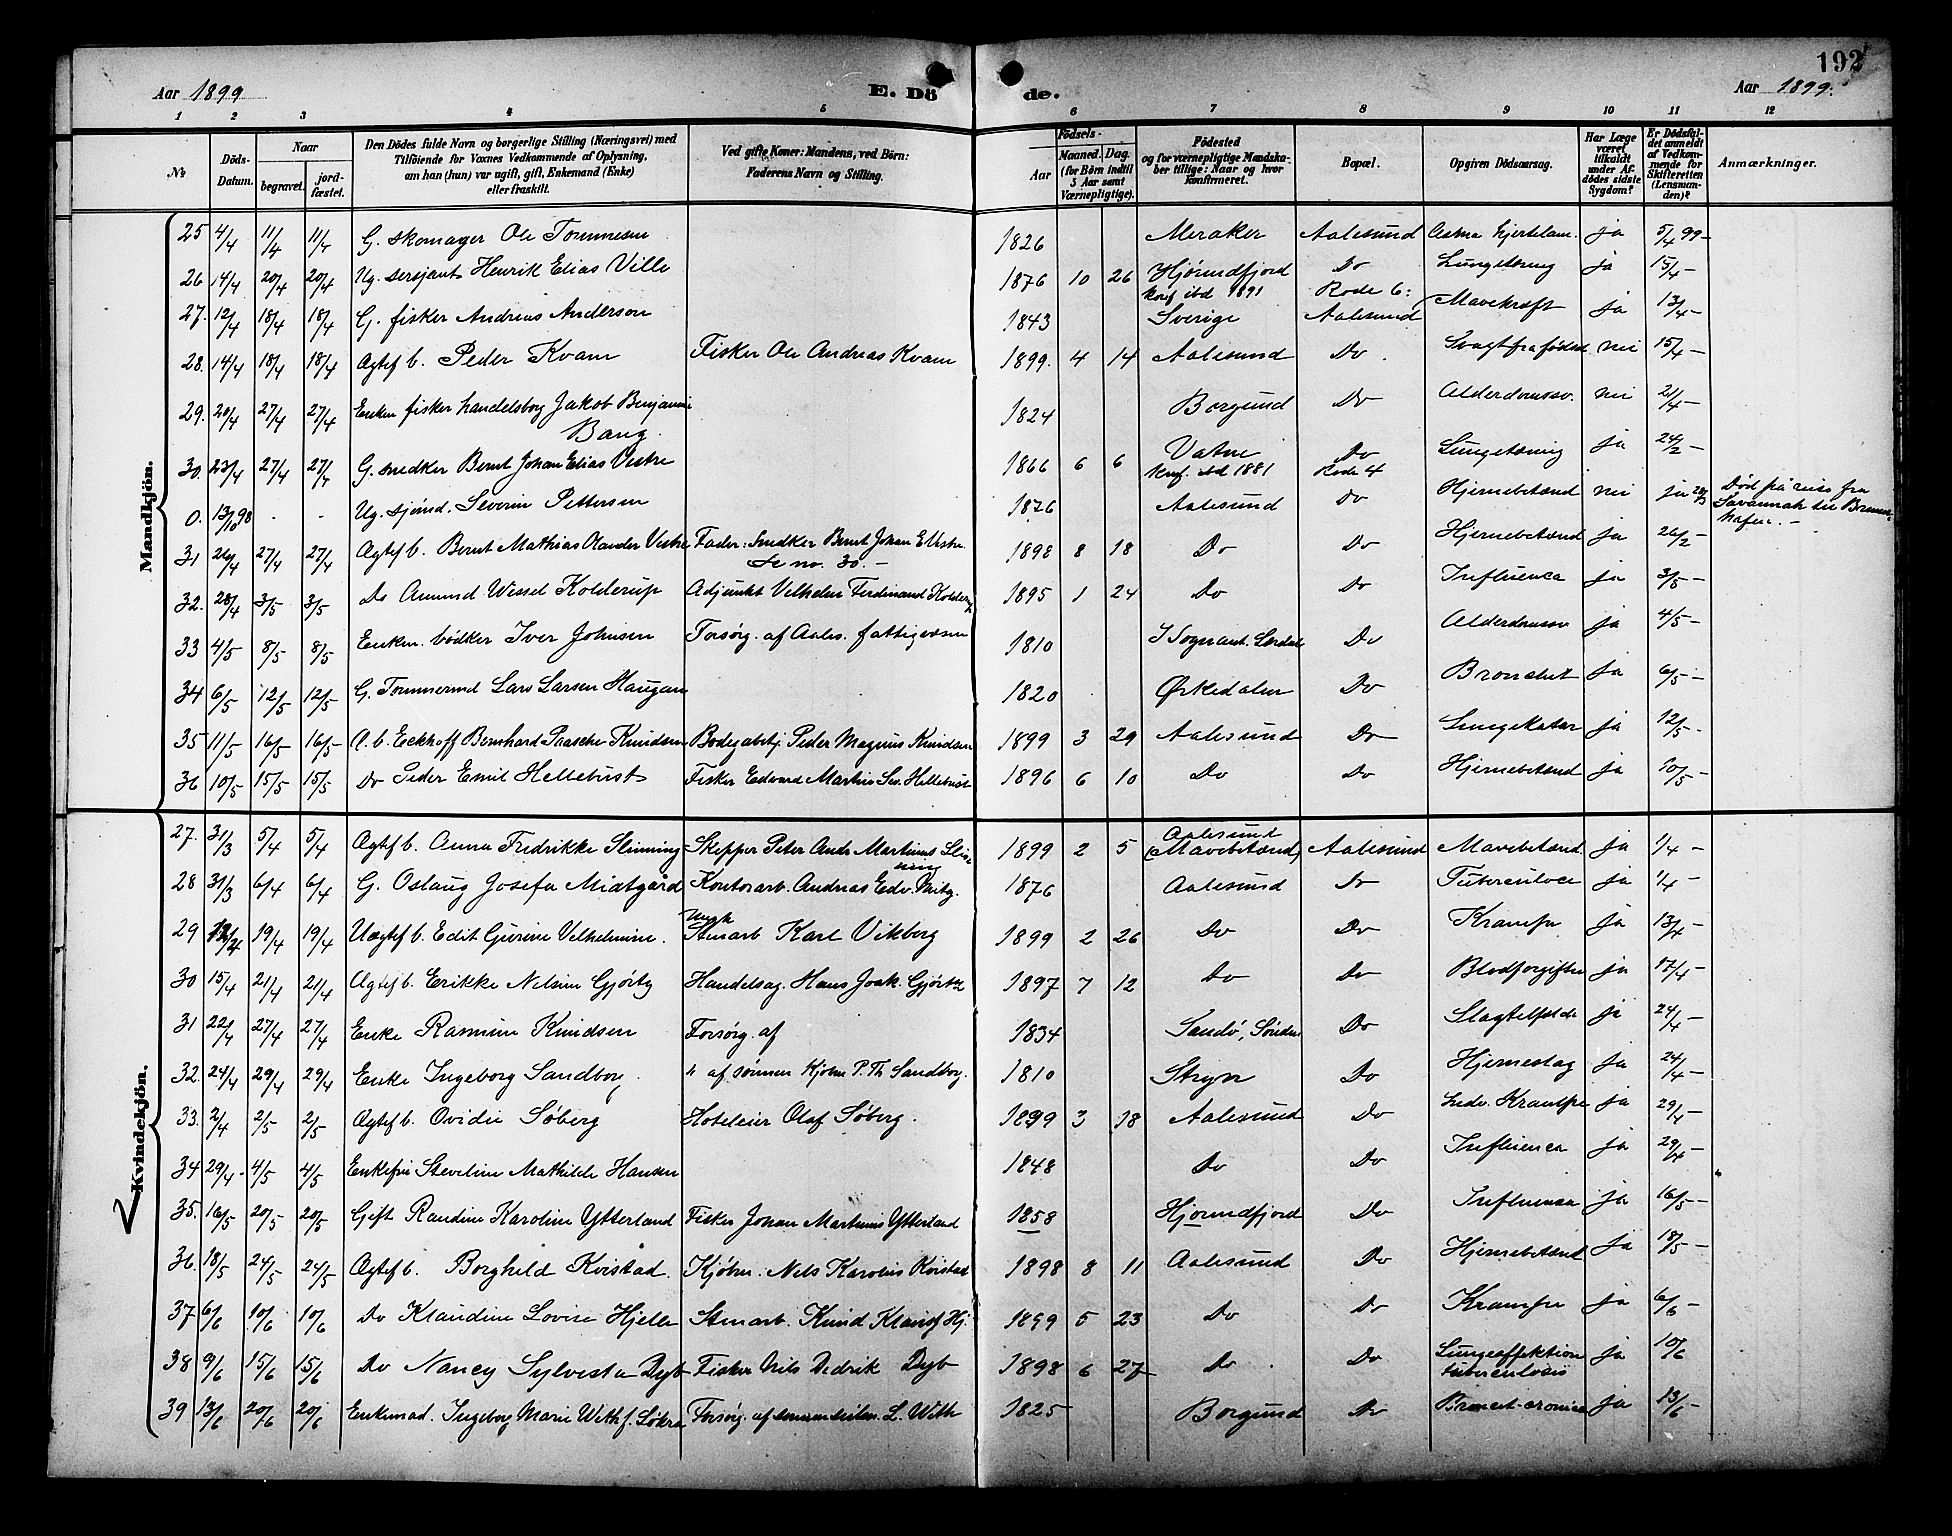 192
Aar 1899
E. Dö de.
Aar 1899.
1 2 3 4 5 6 7 8 9 10 11 12
No
Döds-Datum.
Naar
begravet.
jord-fæstet.
Den Dödes fulde Navn og borgerlige Stilling (Næringsvei) med
Tilföiende for Voxnes Vedkommende af Oplysning,
om han (hun) var ugift, gift, Enkemand (Enke)
eller fraskilt.
Ved gifte Koner: Mandens, ved Börn:
Faderens Navn og Stilling.
Födsels-
Aar
Maaned. Dag.
(for Börn indtil
5 Aar samt
Værnepligtige).
Födested
og for værnepligtige Mandska-
ber tillige: Naar og hvor
konfirmeret.
Bopæl.
Opgiven Dödsaarsag.
Har Læge
været
tilkaldt
under Af-
dödes sidste
Sygdom?
Er Dödsfal-
det anmeldt
af Vedkom-
mende for
Skifteretten
(Lensman-
den)?
Anmærkninger.
Mandkjön.
25 4/4 11/4 11/4 G. skomager Ole Tommesen 1826 Meraker Aalesund Astma hjertelam. ja 5/4 99-
26 14/4 20/4 20/4 Ug. sersjant Henrik Elias Ville 1876 10 26 Hjørundfjord Do Lungetæring ja 15/4 -
konf. ibd 1891 Rode 6:
27. 12/4 18/4 18/4 G. fisker Andreas Anderson 1843 Sverige Aalesund Mavekræft ja 13/4 -
28. 14/4 18/4 18/4 Ægtef b. Peder Kvam Fisker Ole Andreas Kvam 1899. 4 14 Aalesund Do. Svagt fra födsel nei 15/4 -
29. 20/4 27/4 27/4 Enkem fisker handelsborg Jakob Benjamin 1824 Borgund Do Alderdomssv. nei 21/4 -
Bang.
30. 23/4 27/4 27/4 G. snedker Bernt Johan Elias Vestre 1866 6 6 Vatne Do Lungetæring ja 24/2 -
konf. ibd 1881 Rode 4
0. 13/10 98 - - Ug. sjømd. Severin Pettersen 1876 Aalesund Do Hjernebetænd nei ja Död på reise fra
Savannah til Bremer-
hafen. -
31 26/4 27/4 27/4 Ægtef b. Bernt Mathias Olander Vestre Fader: Snedker Bernt Johan E. Vestre 1898 8 18 Do Do Hjernebetænd ja 26/2 -
Se no. 30. -
32. 28/4 3/5 3/5 Do Amund Wessel Kolderup Adjunkt Vilhelm Ferdinand Kolderup 1895 1 24 Do Do Influenca ja 3/5 -
33 4/5 8/5 8/5 Enkem. bödker Iver Johnsen Forsörg. af Aales. fattigvæsen 1810 Do Alderdomssv ja 4/5 -
34 6/5 12/5 12/5 G. Tömmermd Lars Larsen Haugan 1820 Ørkedalen Do Bronchit ja 6/5 -
35 11/5 16/5 16/5 Æ. b. Eckhoff Bernhard Paasche Knudsen Peder Magnus Knudsen 1899 3 29 Aalesund Do Lungekatar ja 12/5 -
36 10/5 15/5 15/5 Do Peder Emil Hellebust Fisker Edvard Martin Sev. Hellebust 1896 6 10 Do Do Hjernebetænd ja 10/5 -
Kvindekjön.
27. 31/3 5/4 5/4 Ægtef b. Anna Fredrikke Slinning Skepper Peter Andr. Martinus Slin 1899 2 5 Aalesund Aalesund Mavebetænd ja 1/4 -
ning (Mavebetænd)
28 31/3 6/4 6/4 G. Oslaug Josefa Midtgård Kontorarb. Andreas Edv. 1876 Aalesund Do Tuberculose ja 1/4 -
29 19/4 19/4 Uægtef b. Edit Gurine Vilhelmine. Ungk
Stenarb Karl Vikberg 1899 2 26 Do Do Krampe ja 13/4 -
30 15/4 21/4 21/4 Ægtef b. Erikke Nelsine Gjørtz Handelsag. Hans Joak. Gjørtz 1897 7 12 Do Do Blodforgiftn ja 17/4 -
31 22/4 27/4 27/4 Enke Rasmine Knudsen Forsørg. af 1834 Sandö, Søndm Do Slagtilfælde ja 24/4 -
32. 24/4 29/4 29/4 Enke Ingeborg Sandborg " af sønnen Kjøbm P. Th. Sandborg. 1810 Stryn Do Hjerneslag ja 24/4 -
33. 2/4 2/5 2/5 Ægtef b. Ovidie Söberg Hoteleier Olaf Söberg. 1899 3 18 Aalesund Do Indv. Krampe ja 29/4 -
34 29/4- 4/5 4/5 Enkefru Steveline Mathilde Hansen 1848 Do Do Influenca ja 29/4 -
35. 16/5 20/5 20/5 Gift Randine Karoline Ytterland Fisker Johan Martinus Ytterland 1858 Hjørundfjord Do Influensa ja 16/5 -
36. 18/5 24/5 24/5 Ægtef b. Borghild Kvistad. Kjöbm. Nels Karolius Kvistad 1898 8 11 Aalesund Do Hjernebetænd ja 18/5 -
37 6/6 10/6 10/6 Do Klaudine Lovise Hjelle Stenarb. Knud Hj. 1899 5 23 Do Do Krampe ja 6/6 -
38 9/6 15/6 15/6 Do Nancy Sylvesta Dyb Fisker Nils Didrik Dyb 1898 6 27 Do. Do Lungeaffektion ja 10/6
tuberculosis
39 13/6 20/6 20/6 Enkemad. Ingeborg Marie Weth f. Løkra Forsörg. af L. Weth 1825 Borgund Do Bronchit cronica ja 13/6 -